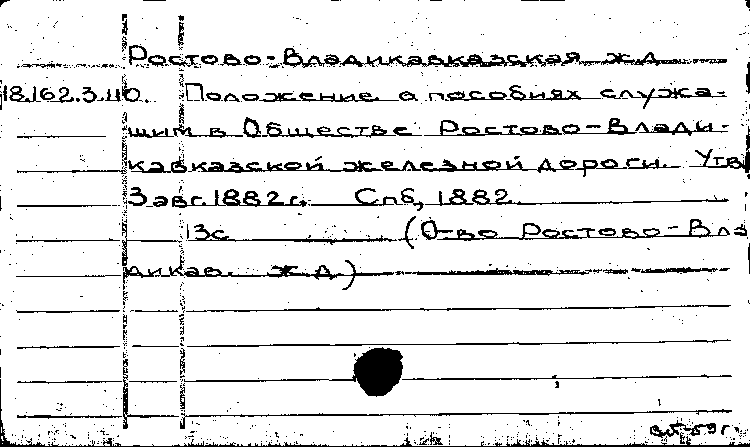 Ростово-Владикавказская ж.д.
18.162.3.110. Положение о пособиях служа-
щим в Обществе Ростово-Влади-
кавказской железной дороги. Утв.
3 авг. 1882 г. Спб, 1882.
13с (О-во Ростово-Вла
дикав. ж.д.)